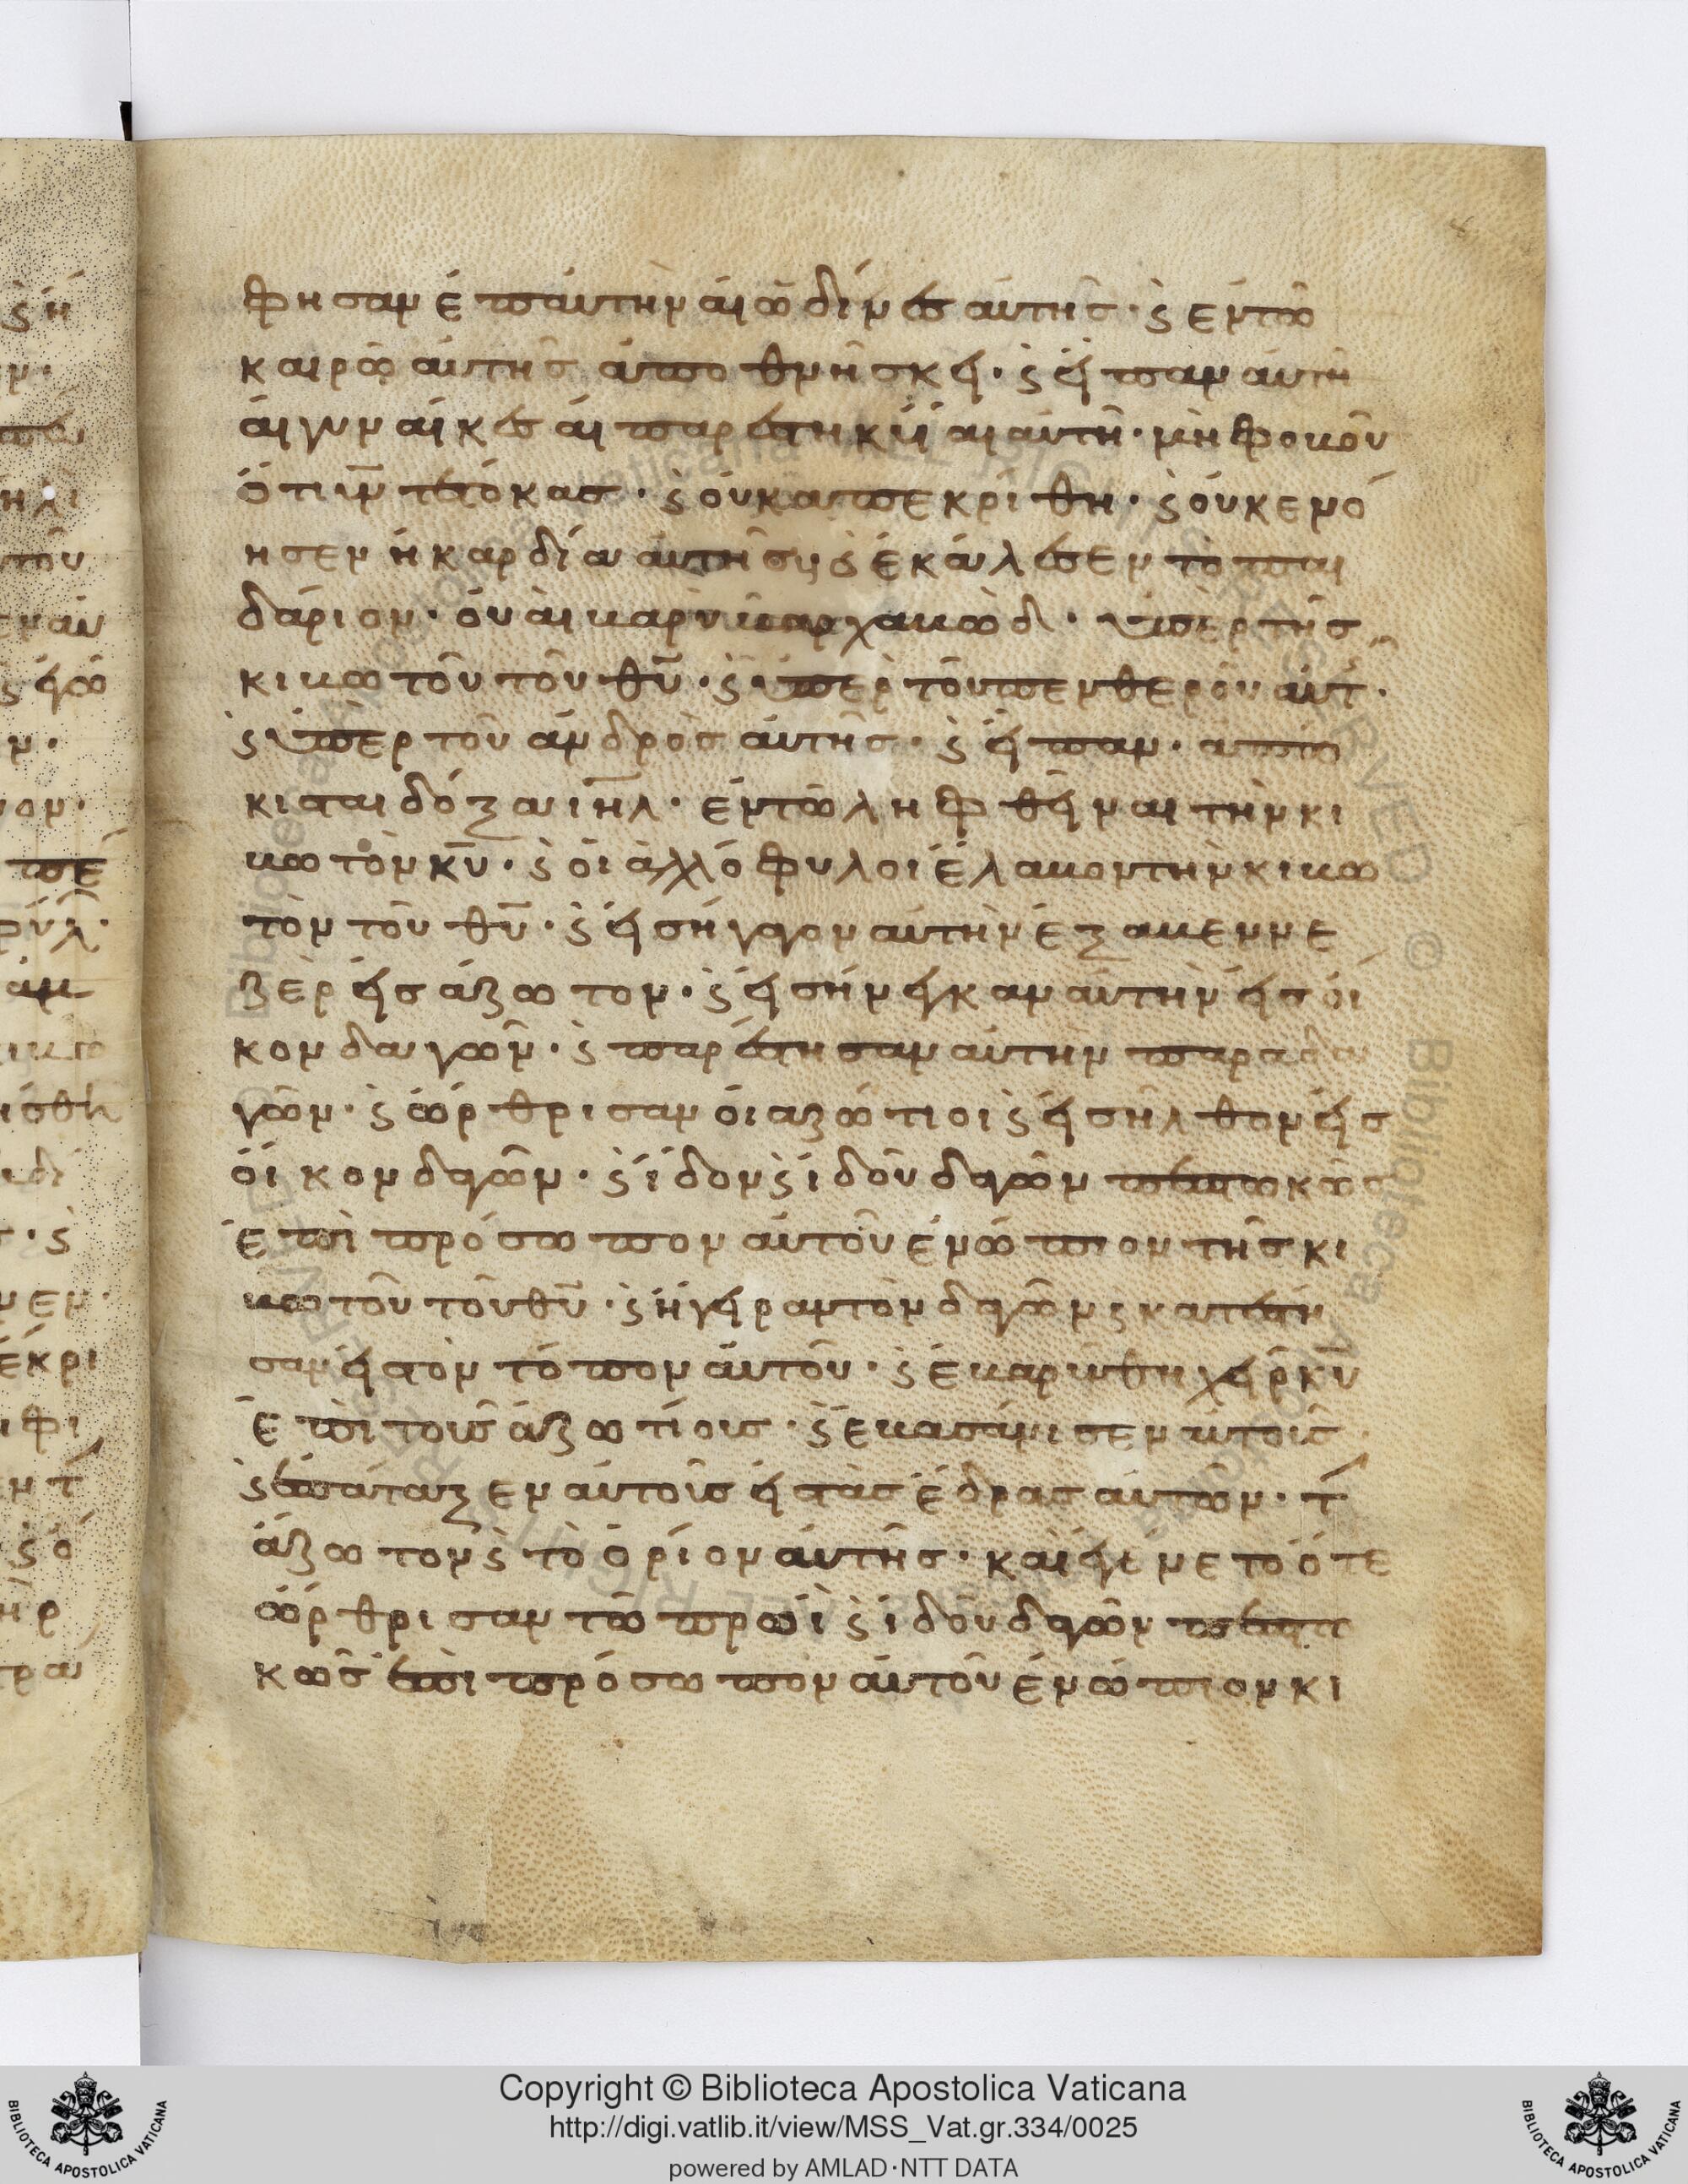 φησαν ἐπ' αὐτὴν αἱ ὠδῖνες αὐτῆς· ϗ ἐν τῶ
καιρῶ αὐτῆς ἀποθνήσκει· ϗ εἶπαν αὐτῆ
αἱ γυναῖκες αἱ παρεστηκυῖαι αὐτῆ· μὴ φοβοῦ
ὅτι υἱν τέτοκας· ϗ οὐκ ἀπεκρίθη· ϗ οὐκ ἐνό
ησεν ἡ καρδία αὐτῆς ϗ ἐκάλεσεν τὸ παι
δάριον· οὐαὶ βαρ χαβὼδ· ὑπὲρ τῆς
κιβωτοῦ τοῦ θυ· ϗ ὑπὲρ τοῦ πενθεροῦ αὐτ·
ϗ ὑπὲρ τοῦ ἀνδρὸς αὐτῆς· ϗ εἶπαν· ἀπώ
κισται δόξα ιηλ· ἐν τῶ ληφθῆναι τὴν κι
βωτὸν κυ· ϗ οἱ ἀλλόφυλοι ἔλαβον τὴν κιβω
τὸν τοῦ θυ· ϗ εἰσήγαγον αὐτὴν ἐξ αβεννε
ζὲρ εἰς ἄζωτον· ϗ εἰσήνεγκαν αὐτὴν εἰς οἶ
κον δαγῶν· ϗ παρέστησαν αὐτὴν παρὰ δα
γῶν· ϗ ὤρθρισαν οἱ αζώτιοι ϗ εἰσῆλθον εἰς
οἶκον δαγῶν· ϗ ἴδον ϗ ἰδοῦ δαγῶν πεπτωκῶς
ἐπὶ πρόσωπον αὐτοῦ ἐνώπιον τῆς κι
βωτοῦ τοῦ θυ· ϗ ἤγειραν τὸν δαγῶν ϗ κατέστη
σαν εἰς τὸν τόπον αὐτοῦ· ϗ ἐβαρύνθη χεὶρ κυ
ἐπὶ τοῖς ἀζωτίοις· ϗ ἐβασάνισεν αὐτοῖς
ϗ ἐπάταξεν αὐτοῖς εἰς τὰς ἕδρας αὐτῶν· τ
ἄζωτον ϗ τὸ ὅριον αὐτῆς· καὶ ἐγένετο ὅτε
ὤρθρισαν τῶ πρωῒ ϗ ἰδοῦ δαγῶν πεπτω
κῶς ἐπὶ πρόσωπον αὐτοῦ ἐνώπιον κι
Copyright © Biblioteca Apostolica Vaticana
http://digi.vatlib.it/view/MSS_Vat.gr.334/0025
powered by AMLAD·NTT DATA